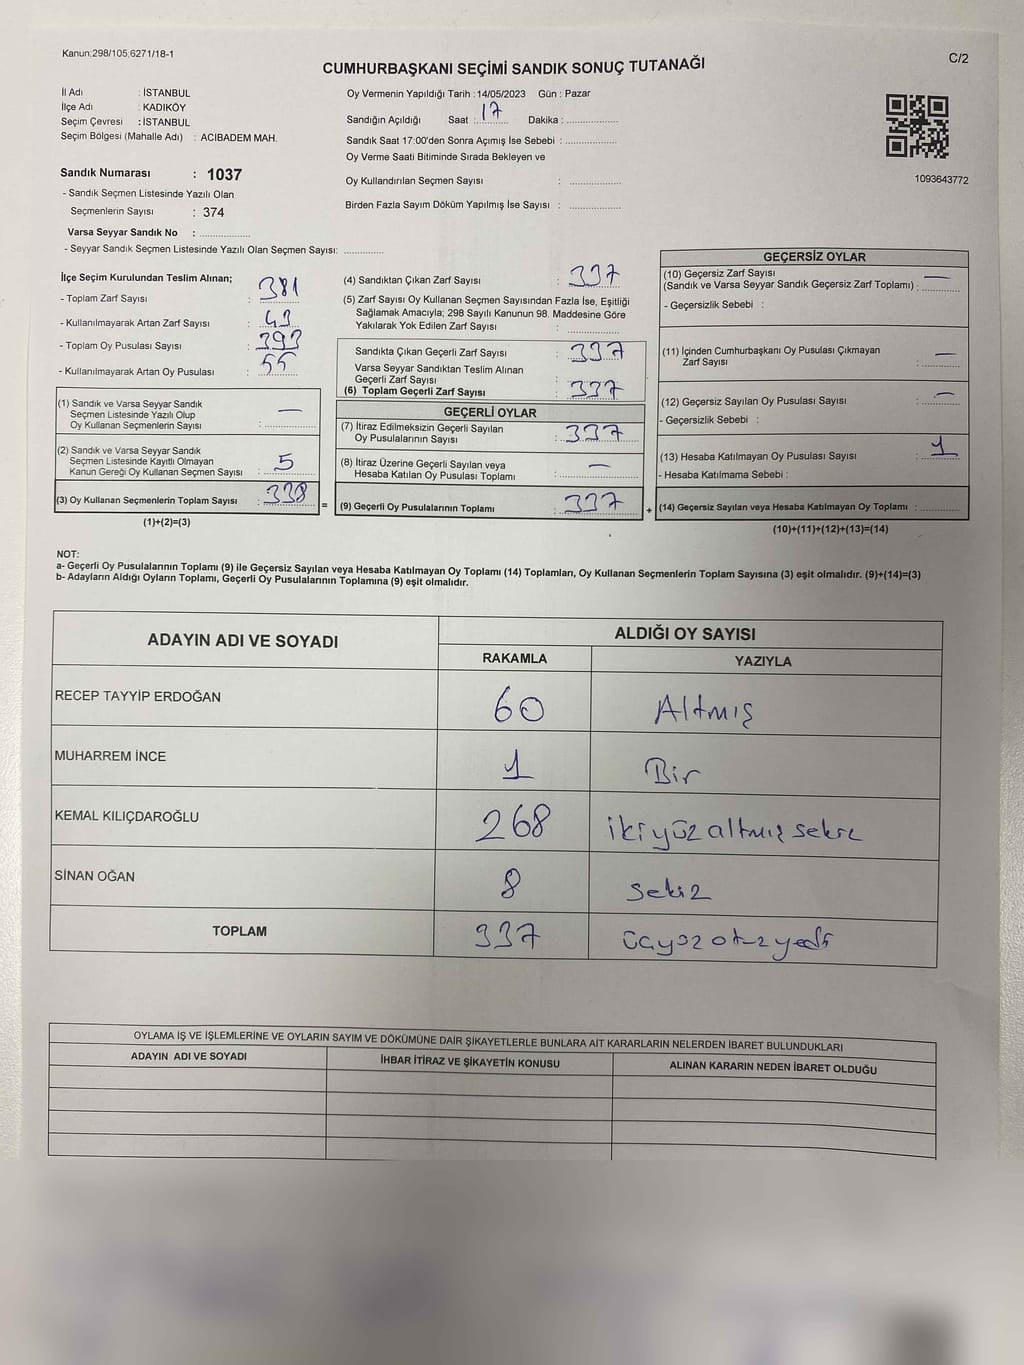 Kanun;298/105,6271/18-1
C/2
CUMHURBAŞKANI SEÇİMİ SANDIK SONUÇ TUTANAĞI
İl Adı : İSTANBUL
İlçe Adı : KADIKÖY
Seçim Çevresi : İSTANBUL
Seçim Bölgesi (Mahalle Adı) : ACIBADEM MAH.
Sandık Numarası : 1037
- Sandık Seçmen Listesinde Yazılı Olan
Seçmenlerin Sayısı : 374
Varsa Seyyar Sandık No : ................
- Seyyar Sandık Seçmen Listesinde Yazılı Olan Seçmen Sayısı: .............
Oy Vermenin Yapıldığı Tarih : 14/05/2023 Gün : Pazar
Sandığın Açıldığı Saat : 17 Dakika : ................
Sandık Saat 17:00'den Sonra Açımış İse Sebebi : ................
Oy Verme Saati Bitiminde Sırada Bekleyen ve
Oy Kullandırılan Seçmen Sayısı : ................
Birden Fazla Sayım Döküm Yapılmış İse Sayısı : ................
1093643772
İlçe Seçim Kurulundan Teslim Alınan;
- Toplam Zarf Sayısı : 381
- Kullanılmayarak Artan Zarf Sayısı : 43
- Toplam Oy Pusulası Sayısı : 393
- Kullanılmayarak Artan Oy Pusulası : 55
(1) Sandık ve Varsa Seyyar Sandık
Seçmen Listesinde Yazılı Olup
Oy Kullanan Seçmenlerin Sayısı : —
(2) Sandık ve Varsa Seyyar Sandık
Seçmen Listesinde Kayıtlı Olmayan
Kanun Gereği Oy Kullanan Seçmen Sayısı : 5
(3) Oy Kullanan Seçmenlerin Toplam Sayısı : 338
(1)+(2)=(3)
=
(4) Sandıktan Çıkan Zarf Sayısı : 337
(5) Zarf Sayısı Oy Kullanan Seçmen Sayısından Fazla İse, Eşitliği
Sağlamak Amacıyla; 298 Sayılı Kanunun 98. Maddesine Göre
Yakılarak Yok Edilen Zarf Sayısı : ................
Sandıkta Çıkan Geçerli Zarf Sayısı : 337
Varsa Seyyar Sandıktan Teslim Alınan
Geçerli Zarf Sayısı :
(6) Toplam Geçerli Zarf Sayısı : 337
GEÇERLİ OYLAR
(7) İtiraz Edilmeksizin Geçerli Sayılan
Oy Pusulalarının Sayısı : 337
(8) İtiraz Üzerine Geçerli Sayılan veya
Hesaba Katılan Oy Pusulası Toplamı : —
(9) Geçerli Oy Pusulalarının Toplamı : 337
+
GEÇERSİZ OYLAR
(10) Geçersiz Zarf Sayısı
(Sandık ve Varsa Seyyar Sandık Geçersiz Zarf Toplamı) : —
- Geçersizlik Sebebi :
(11) İçinden Cumhurbaşkanı Oy Pusulası Çıkmayan
Zarf Sayısı : —
(12) Geçersiz Sayılan Oy Pusulası Sayısı : —
- Geçersizlik Sebebi :
(13) Hesaba Katılmayan Oy Pusulası Sayısı : 1
- Hesaba Katılmama Sebebi :
(14) Geçersiz Sayılan veya Hesaba Katılmayan Oy Toplamı : ............
(10)+(11)+(12)+(13)=(14)
NOT:
a- Geçerli Oy Pusulalarının Toplamı (9) ile Geçersiz Sayılan veya Hesaba Katılmayan Oy Toplamı (14) Toplamları, Oy Kullanan Seçmenlerin Toplam Sayısına (3) eşit olmalıdır. (9)+(14)=(3)
b- Adayların Aldığı Oyların Toplamı, Geçerli Oy Pusulalarının Toplamına (9) eşit olmalıdır.
ADAYIN ADI VE SOYADI ALDIĞI OY SAYISI
RAKAMLA YAZIYLA
RECEP TAYYİP ERDOĞAN 60 Altmış
MUHARREM İNCE 1 Bir
KEMAL KILIÇDAROĞLU 268 ikiyüzaltmış sekiz
SİNAN OĞAN 8 sekiz
TOPLAM 337 üçyüz otuz yedi
OYLAMA İŞ VE İŞLEMLERİNE VE OYLARIN SAYIM VE DÖKÜMÜNE DAİR ŞİKAYETLERLE BUNLARA AİT KARARLARIN NELERDEN İBARET BULUNDUKLARI
ADAYIN ADI VE SOYADI İHBAR İTİRAZ VE ŞİKAYETİN KONUSU ALINAN KARARIN NEDEN İBARET OLDUĞU